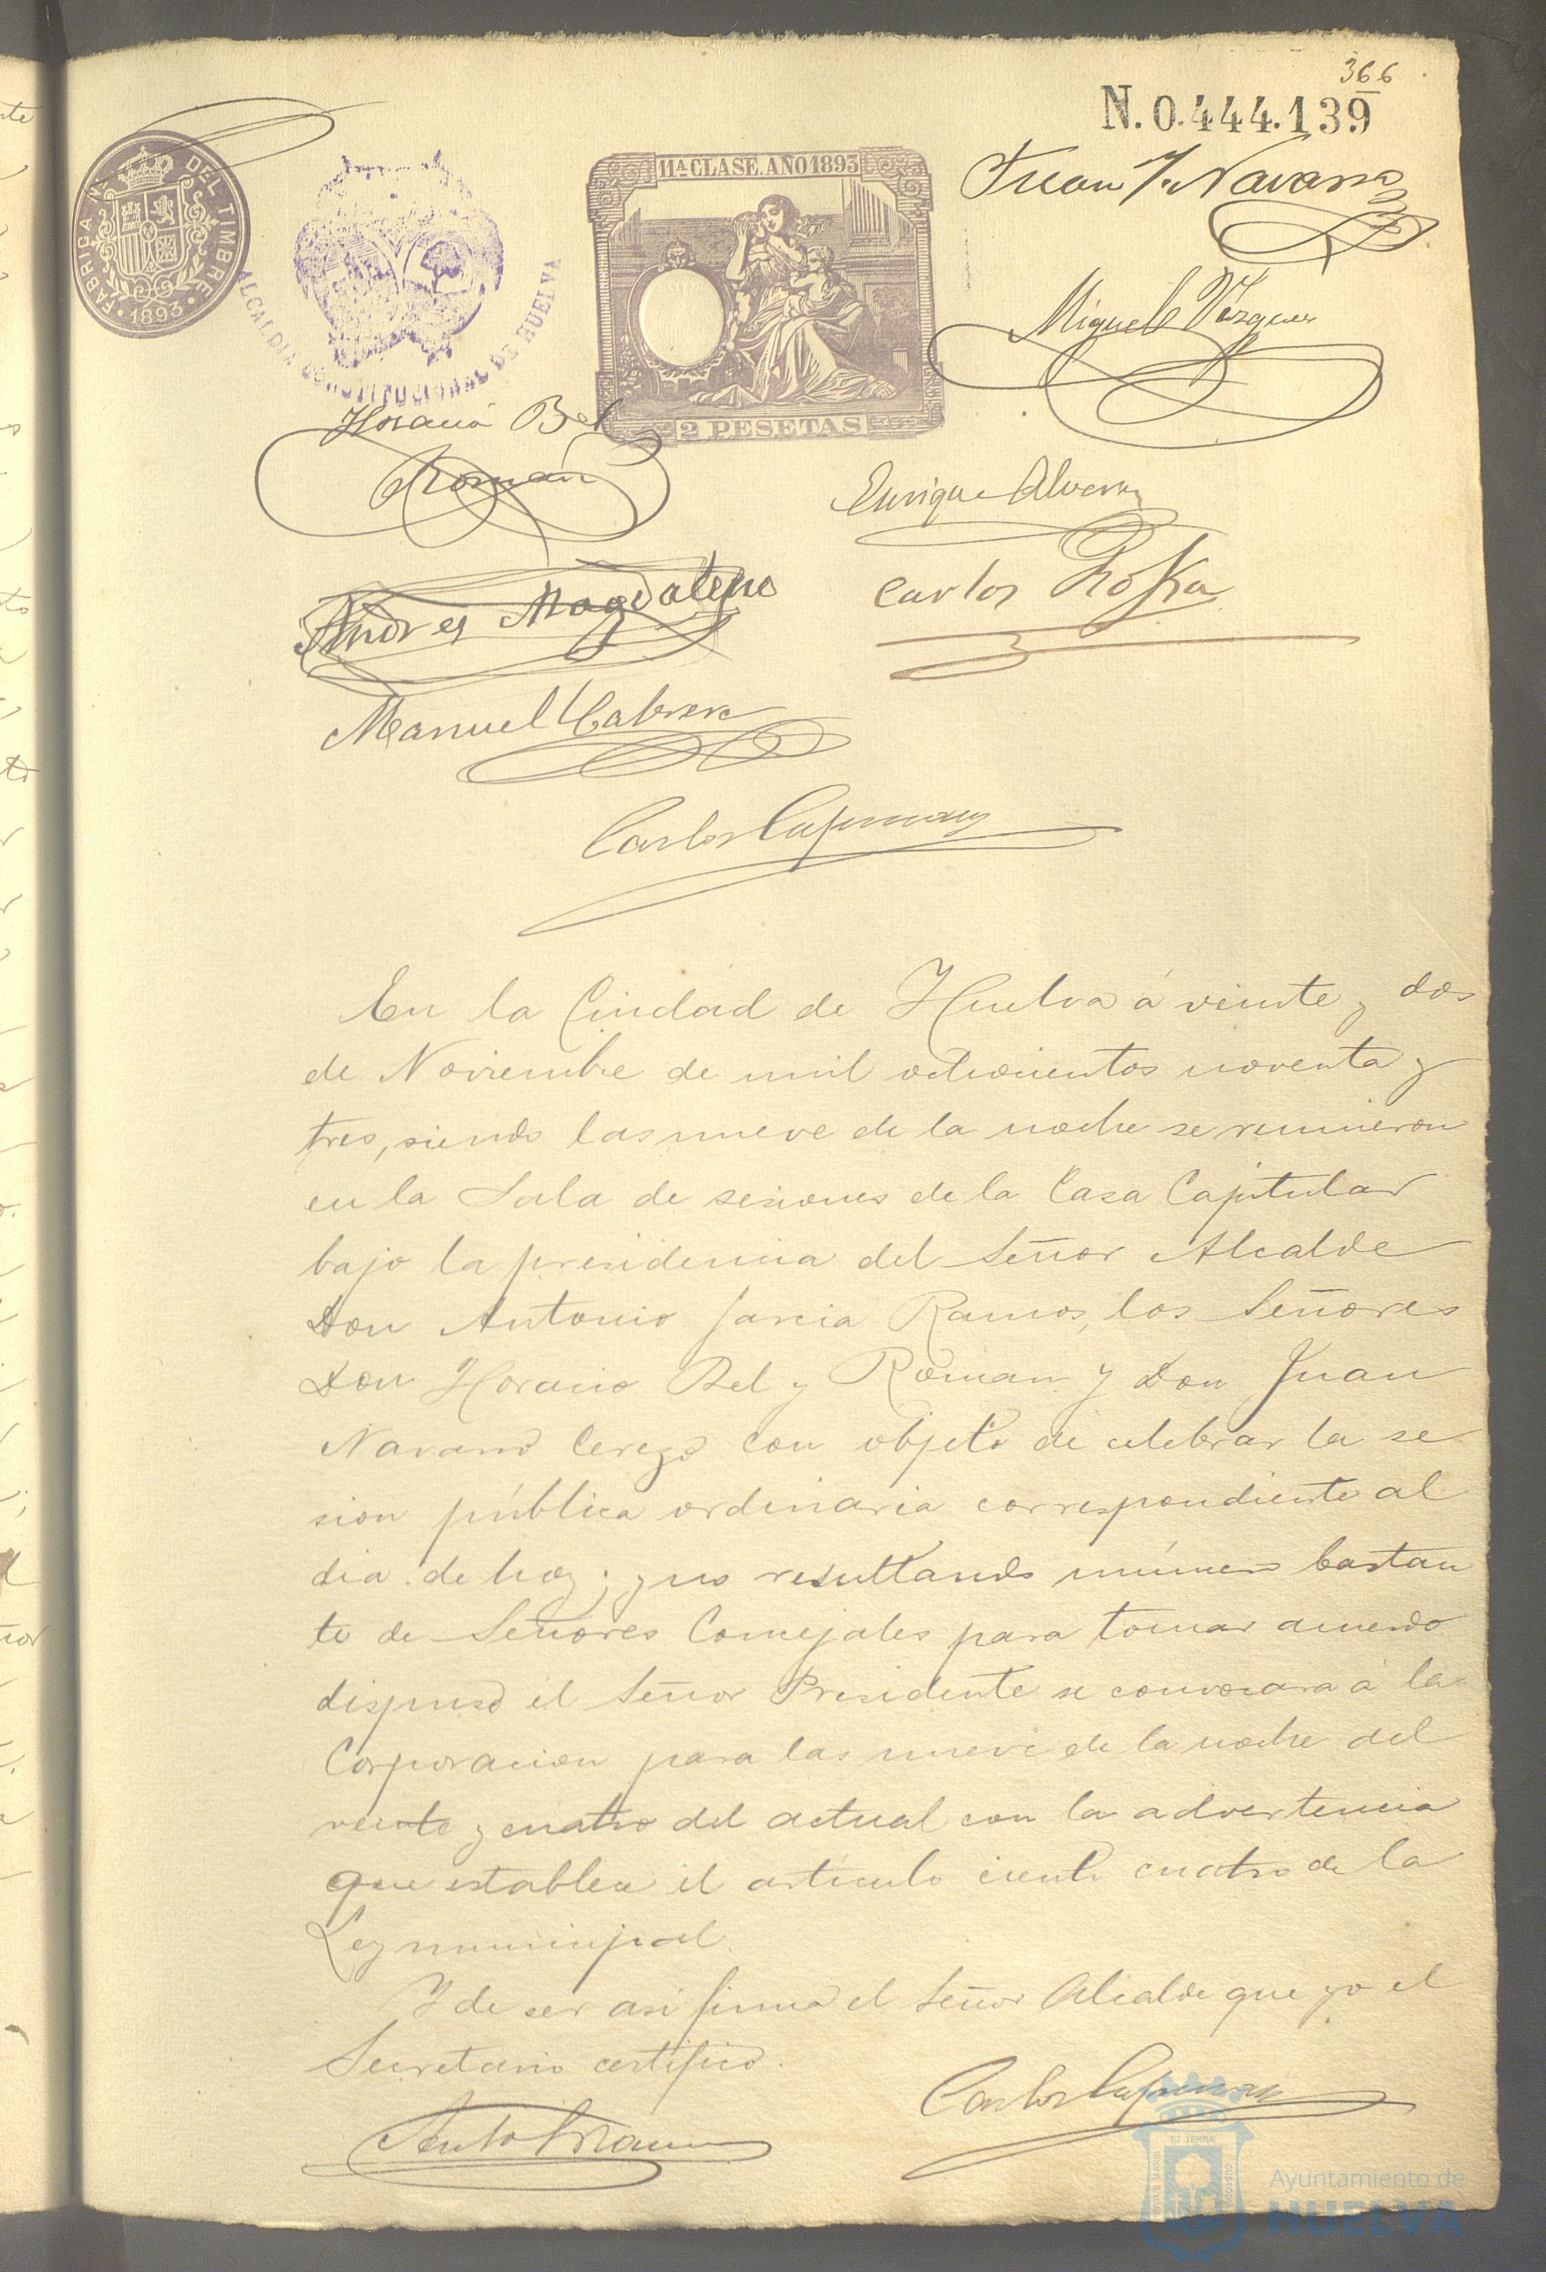 366
N. 0.444.139
FABRICA Nal DEL TIMBRE
1893
ALCALDIA CONSTITUCIONAL DE HUELVA
11ª CLASE. AÑO 1893
2 PESETAS
Juan Navarro
Miguel Vázquez
Horacio Bel
Román
Enrique
Andrés Magdaleno
Carlos
Manuel Cabrera
Carlos
En la Ciudad de Huelva á veinte y dos
de Noviembre de mil ochocientos noventa y
tres, siendo las nueve de la noche se reunieron
en la Sala de sesiones de la Casa Capitular
bajo la presidencia del Señor Alcalde
Don Antonio Garcia Ramos, los Señores
Don Horacio Bel y Roman y Don Juan
Navarro Cerezo con objeto de celebrar la se
sion pública ordinaria correspondiente al
dia de hoy; y no resultando número bastan
te de Señores Concejales para tomar acuerdo
dispuso el Señor Presidente se convocara á la
Corporacion para las nueve de la noche del
veinte y cuatro del actual con la advertencia
que establece el artículo ciento cuatro de la
Ley municipal.
Y de ser asi firma el Señor Alcalde que yo el
Secretario certifico.
Carlos
Anto
Ayuntamiento de
HUELVA